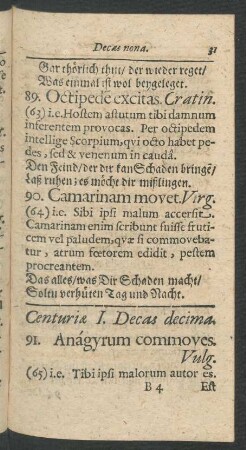 Decas nona. 31
Gar thörlich thut/ der wieder reget/
Was einmal ist wol beygeleget.
89. Octipedē excitas. Cratin.
(63) i.e. Hostem astutum tibi damnum
inferentem provocas. Per octipedem
intellige Scorpium, qvi octo habet pe-
des, sed & venenum in caudâ.
Den Feind/der dir kan Schaden bringē/
Laß ruhen; es möcht dir mißlingen.
90. Camarinam movet. Virg.
(64) i.e. Sibi ipsi malum accersit.
Camarinam enim scribunt fuisse fruti-
cem vel paludem, qvæ si commoveba-
tur, aërum fœtorem edidit, pestem
procreantem.
Das alles/was Dir Schaden macht/
Soltu verhüten Tag und Nacht.
Centuriæ I. Decas decima.
91. Anágyrum commoves.
Vulg.
(65) i.e. Tibi ipsi malorum autor es.
B 4 Est